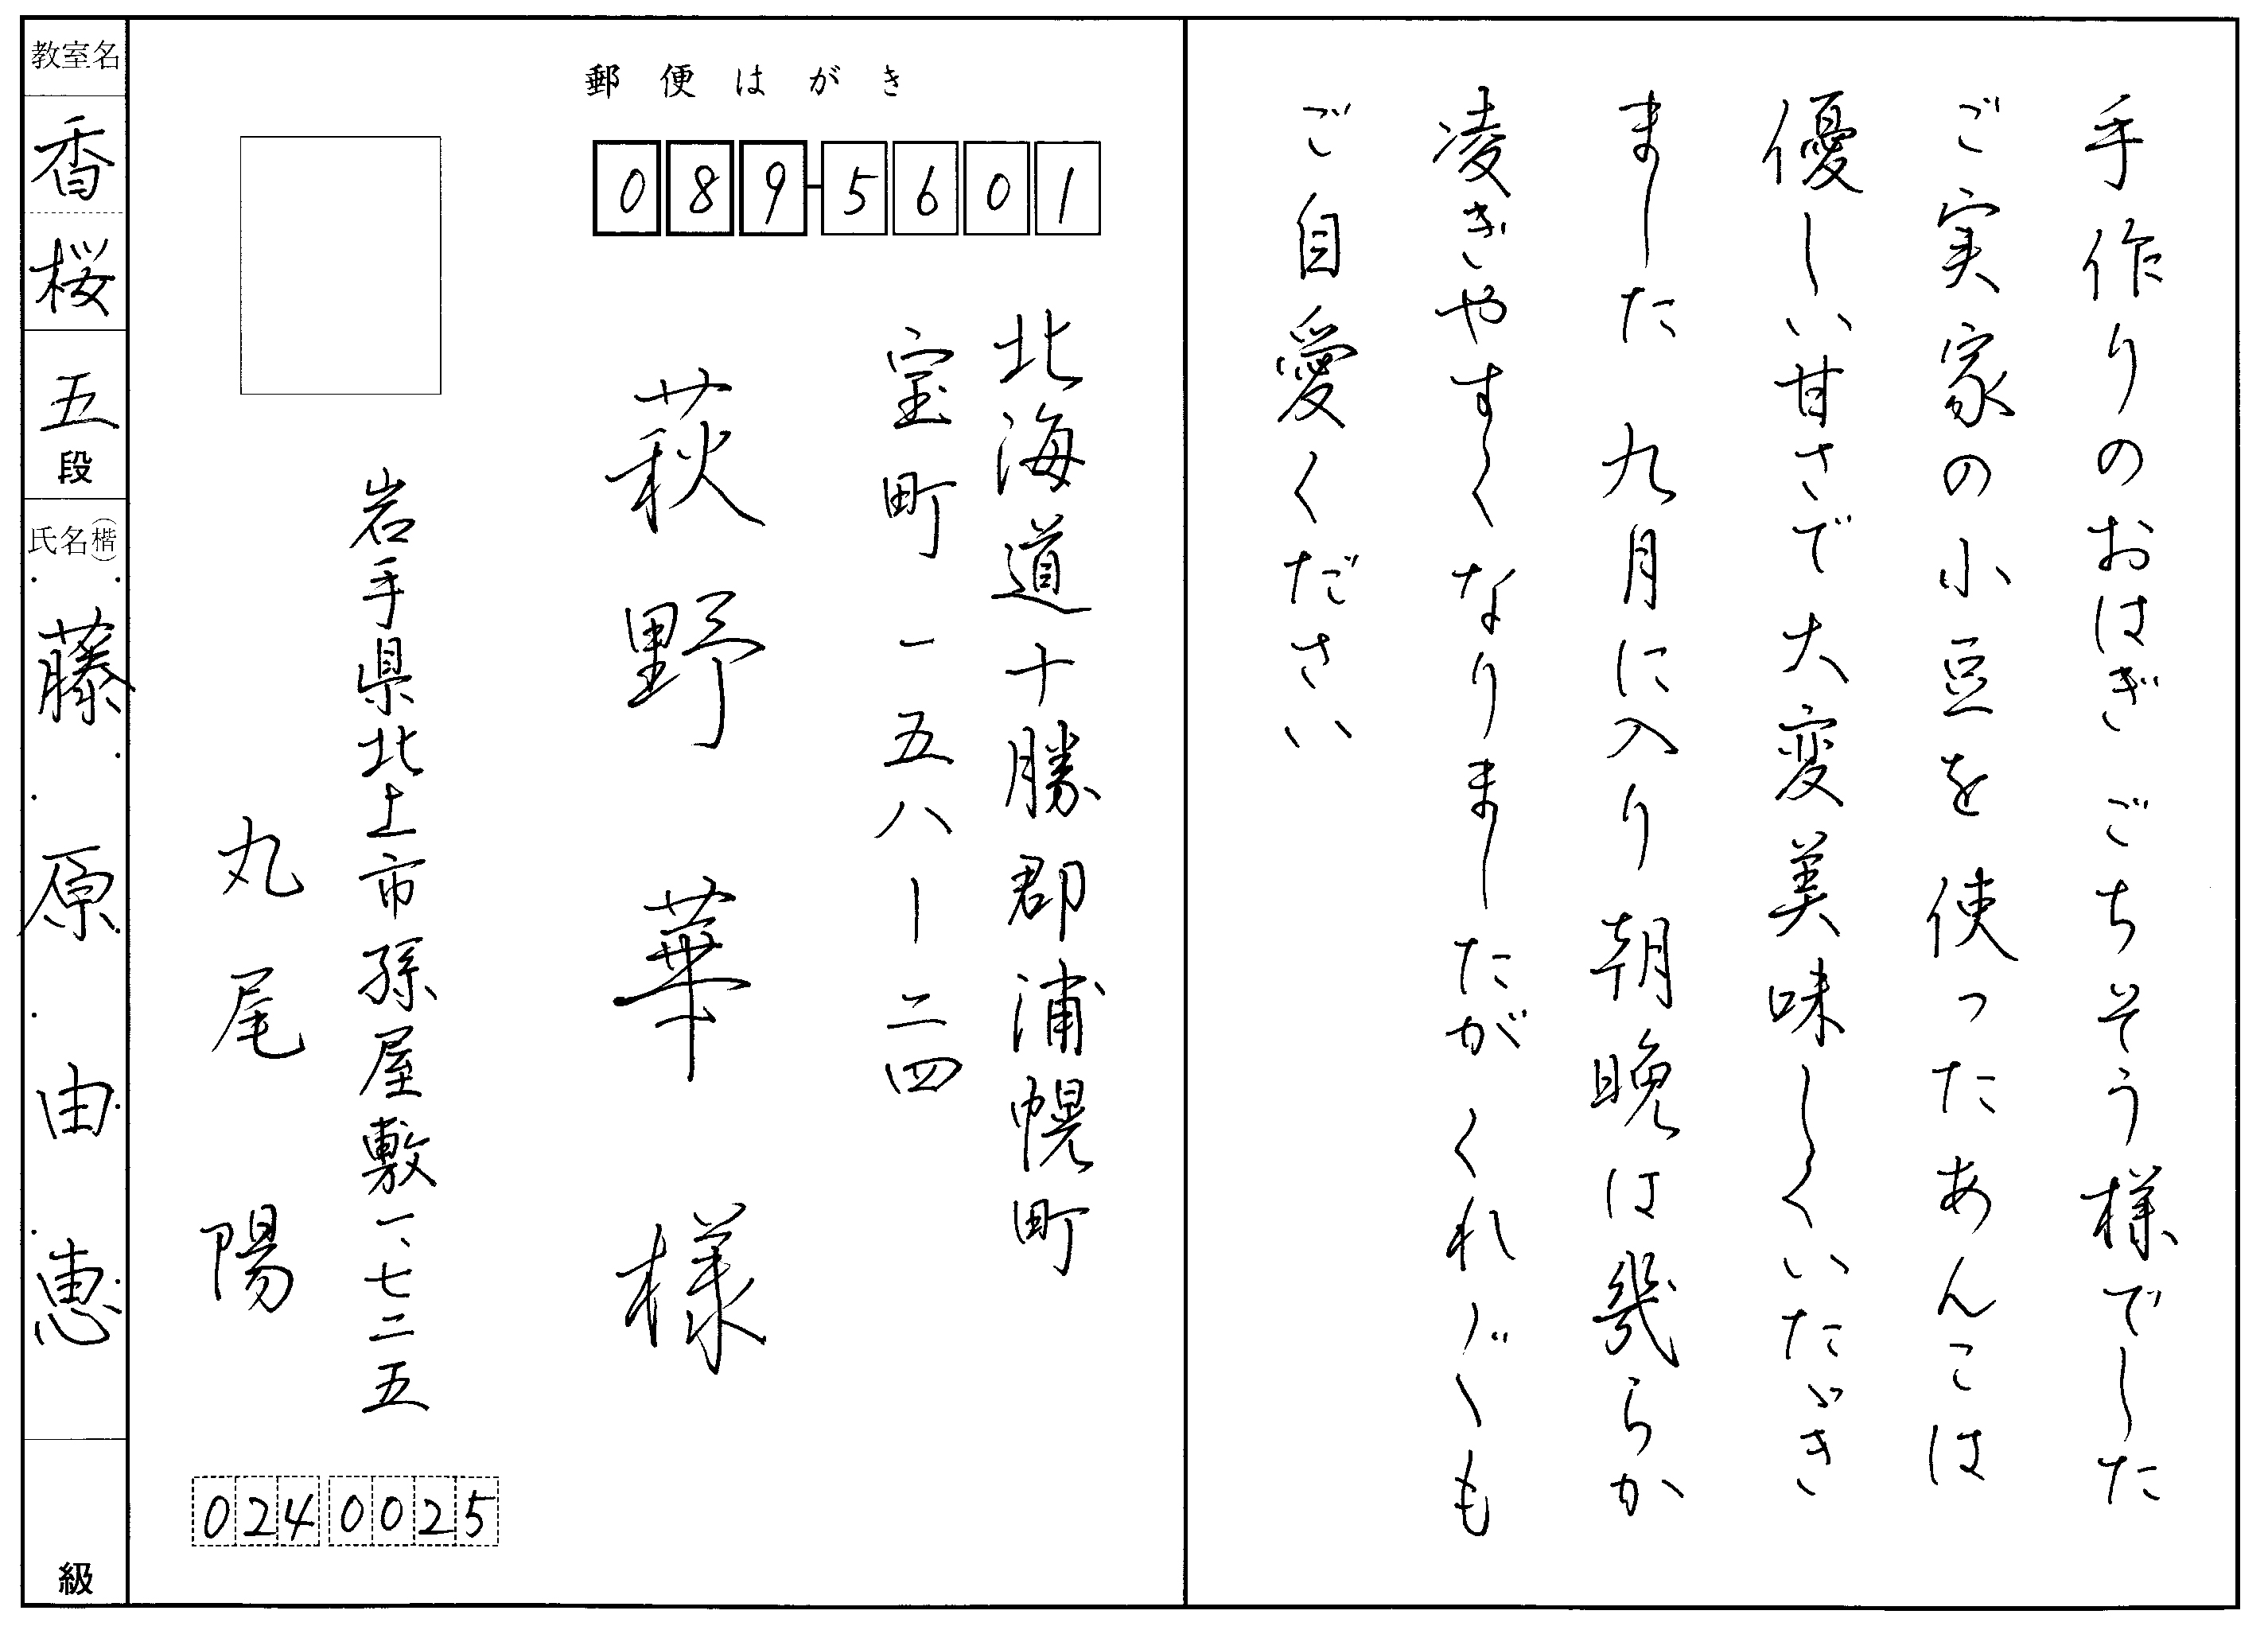 手作りのおはぎ ごちそう様でした
ご実家の小豆を使ったあんこは
優しい甘さで大変美味しくいたゞき
ました 九月に入り朝晩は幾らか
凌ぎやすくなりましたが くれ〴〵も
ご自愛ください
郵便はがき
089-5601
北海道十勝郡浦幌町
宝町一五八ー二四
萩野 華 様
岩手県北上市孫屋敷一、七二五
丸尾 陽
024 0025
教室名
香桜
五段
氏名(楷)
藤原由恵
級